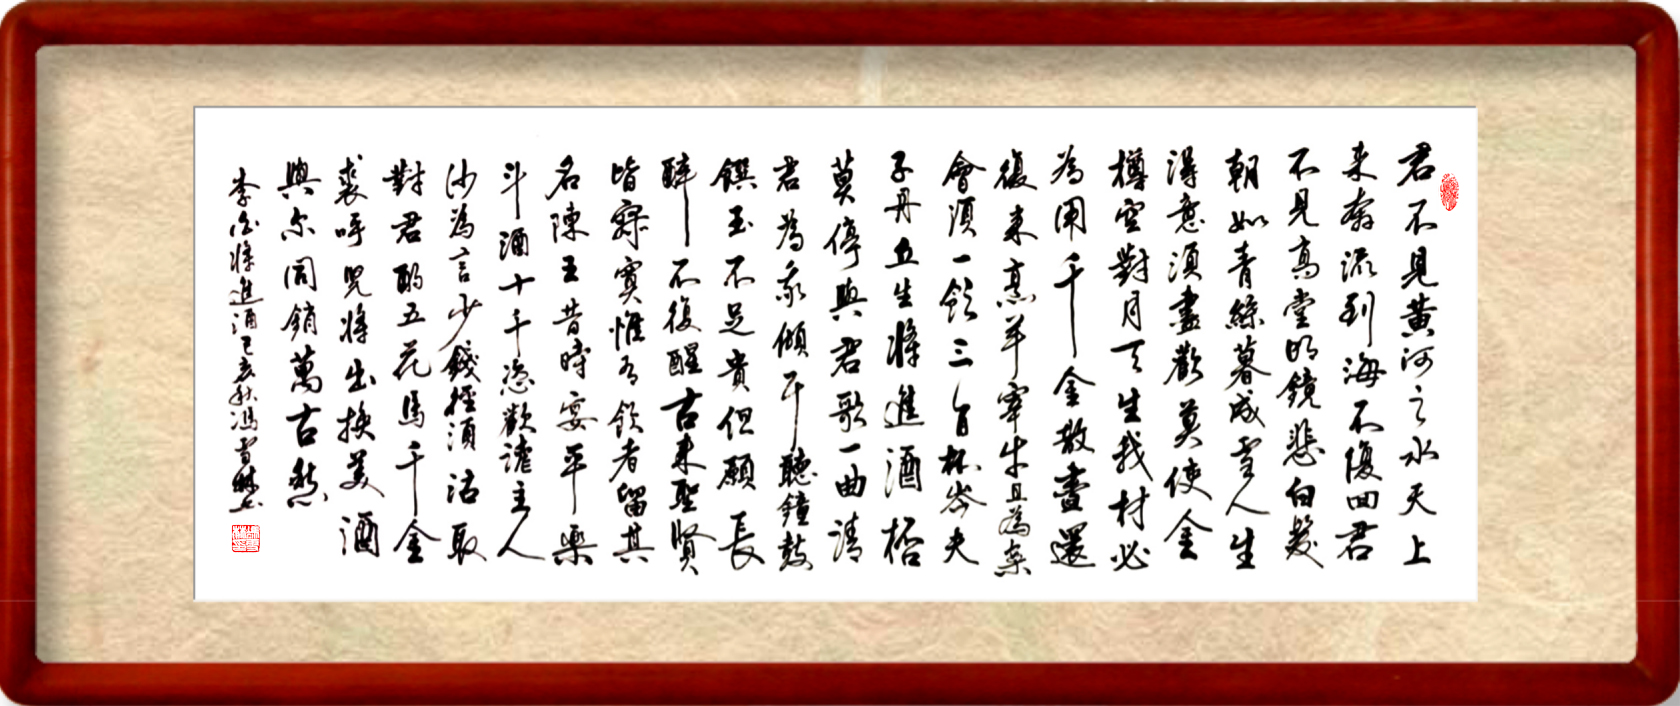 君不見黃河之水天上
来奔流到海不復回君
不見高堂明鏡悲白髮
朝如青絲暮成雪人生
得意須盡歡莫使金
樽空對月天生我材必
為用千金散盡還
復来烹羊宰牛且為樂
會須一飲三百杯岑夫
子丹丘生將進酒杯
莫停與君歌一曲請
君為我傾耳聽鐘鼓
饌玉不足貴但願長
醉不復醒古来聖賢
皆寂寞惟有飲者留其
名陳王昔時宴平樂
斗酒十千恣歡謔主人
何為言少錢徑須沽取
對君酌五花馬千金
裘呼兒將出換美酒
與尔同銷萬古愁
李白將進酒己亥秋馮雪林書